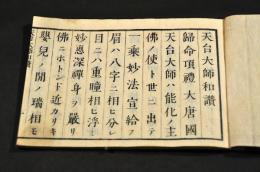 天台大師和讃
歸命頂禮大唐國
天台大師ハ能化ノ主
佛ノ使ト世ニ出テ
一乘妙法宣給フ
眉ハ八字ニ相ヒ分レ
目ニハ重瞳相ヒ浮ヘ
妙惠深禪身ヲ嚴リ
佛ニホトンド近カリキ
嬰兒ノ間ノ瑞相モ